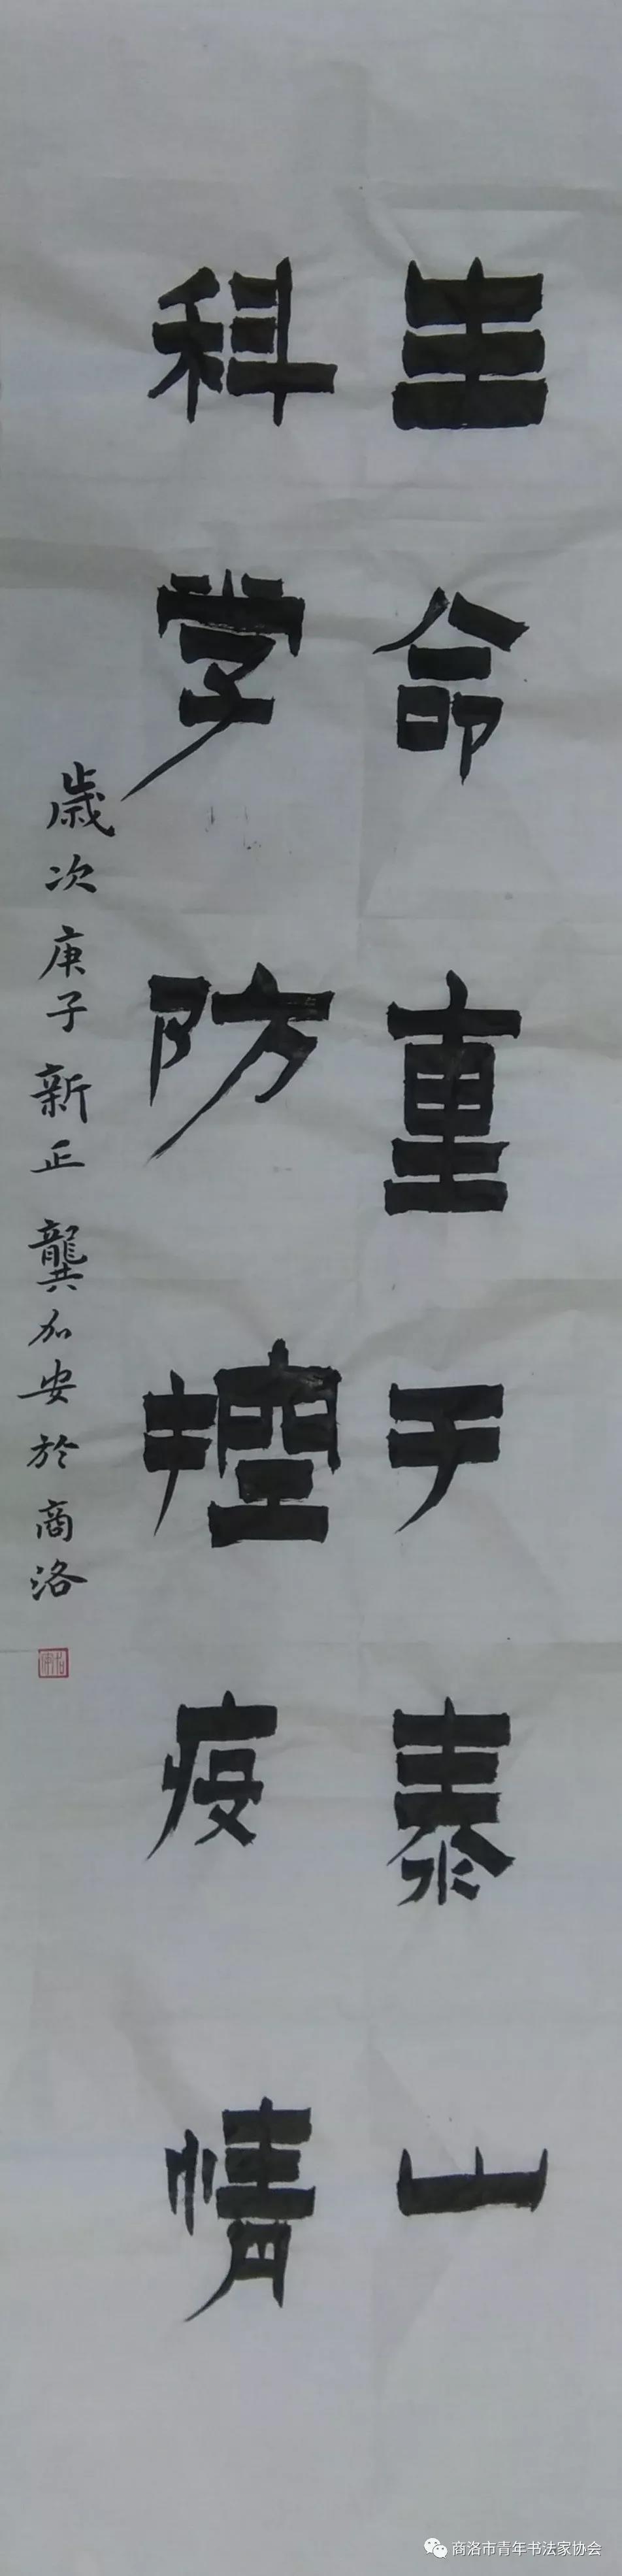 生命重于泰山
科学防控疫情
歲次庚子新正龔加安於商洛
商洛市青年书法家协会